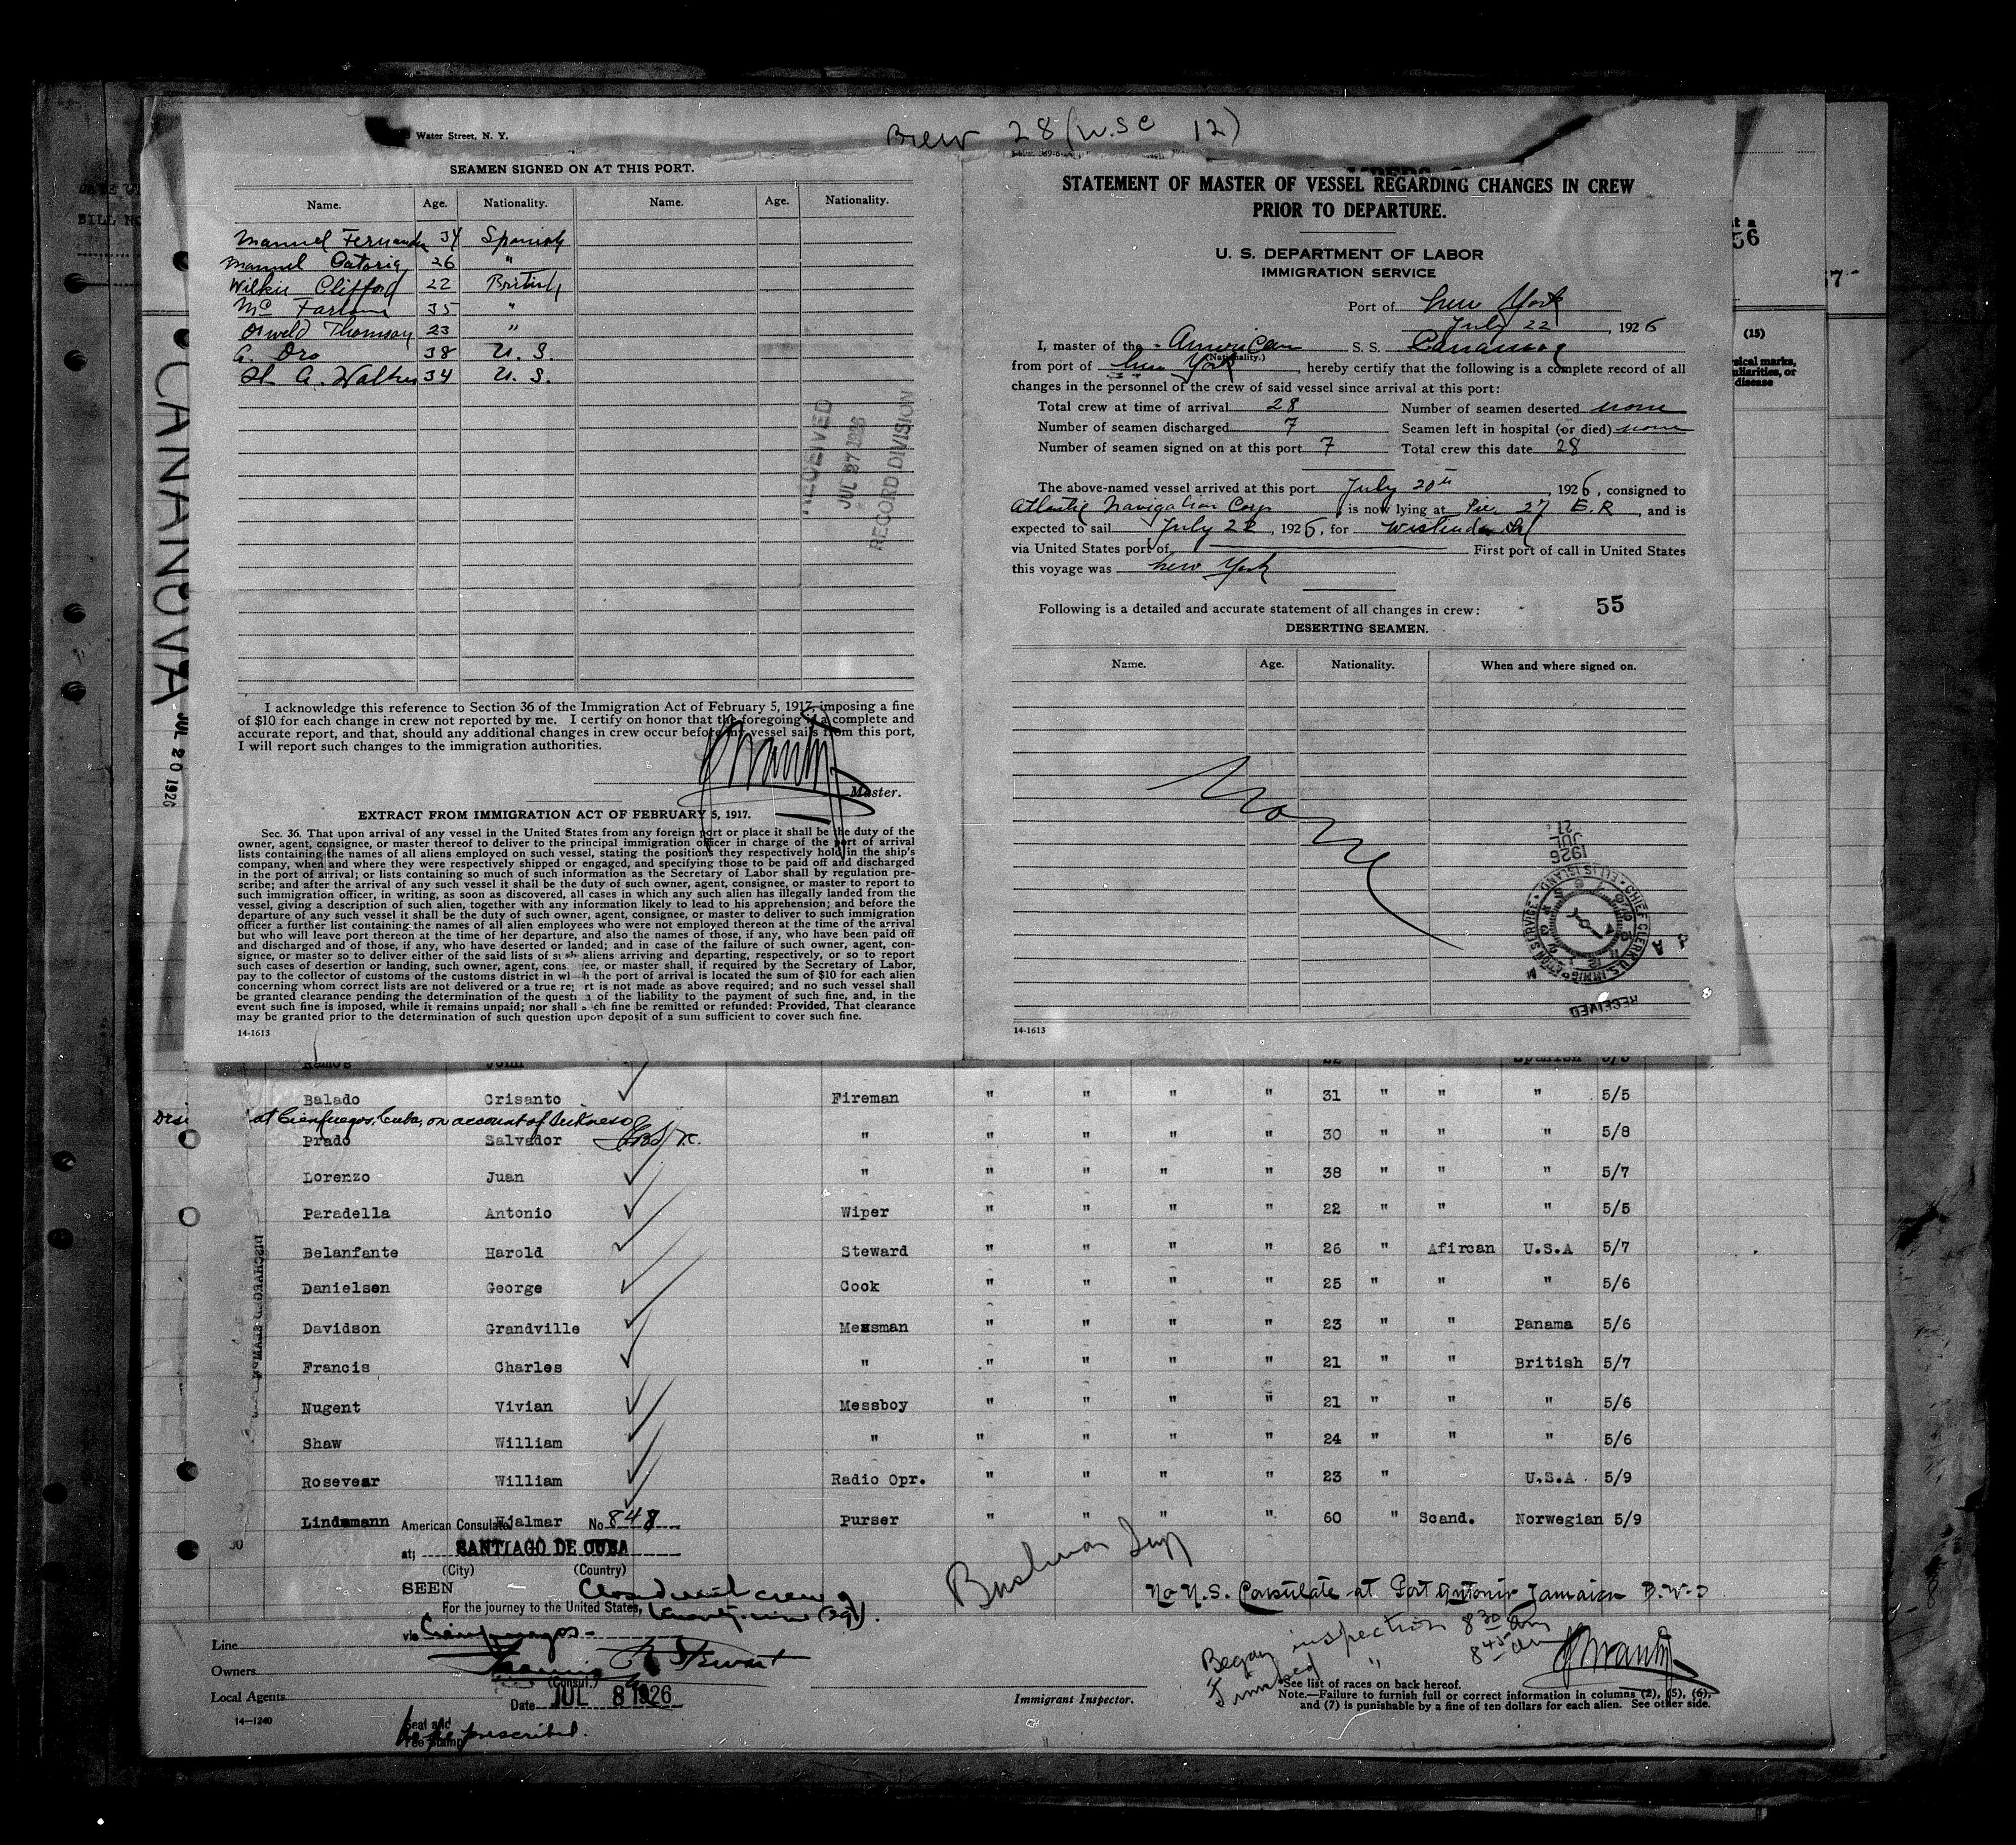 Water Street, N. Y.
Crew 28 (U.S.C 12)
SEAMEN SIGNED ON AT THIS PORT.
Name. Age. Nationality. Name. Age. Nationality.
Manuel Fernandez 34 Spanish
Manuel 26 "
Wilkie Clifford 22 British
McFarlane 35 "
Osweld Thomson 23 "
G. Oro 38 U. S.
H. G. Walker 34 U. S.
RECEIVED
JUL 27 1926
RECORD DIVISION
I acknowledge this reference to Section 36 of the Immigration Act of February 5, 1917, imposing a fine
of $10 for each change in crew not reported by me. I certify on honor that the foregoing is a complete and
accurate report, and that, should any additional changes in crew occur before my vessel sails from this port,
I will report such changes to the immigration authorities.
Master.
EXTRACT FROM IMMIGRATION ACT OF FEBRUARY 5, 1917.
Sec. 36. That upon arrival of any vessel in the United States from any foreign port or place it shall be the duty of the
owner, agent, consignee, or master thereof to deliver to the principal immigration officer in charge of the port of arrival
lists containing the names of all aliens employed on such vessel, stating the positions they respectively hold in the ship's
company, when and where they were respectively shipped or engaged, and specifying those to be paid off and discharged
in the port of arrival; or lists containing so much of such information as the Secretary of Labor shall by regulation pre-
scribe; and after the arrival of any such vessel it shall be the duty of such owner, agent, consignee, or master to report to
such immigration officer, in writing, as soon as discovered, all cases in which any such alien has illegally landed from the
vessel, giving a description of such alien, together with any information likely to lead to his apprehension; and before the
departure of any such vessel it shall be the duty of such owner, agent, consignee, or master to deliver to such immigration
officer a further list containing the names of all alien employees who were not employed thereon at the time of the arrival
but who will leave port thereon at the time of her departure, and also the names of those, if any, who have been paid off
and discharged and of those, if any, who have deserted or landed; and in case of the failure of such owner, agent, con-
signee, or master so to deliver either of the said lists of such aliens arriving and departing, respectively, or so to report
such cases of desertion or landing, such owner, agent, consignee, or master shall, if required by the Secretary of Labor,
pay to the collector of customs of the customs district in which the port of arrival is located the sum of $10 for each alien
concerning whom correct lists are not delivered or a true report is not made as above required; and no such vessel shall
be granted clearance pending the determination of the question of the liability to the payment of such fine, and, in the
event such fine is imposed, while it remains unpaid; nor shall such fine be remitted or refunded: Provided, That clearance
may be granted prior to the determination of such question upon deposit of a sum sufficient to cover such fine.
14-1613
CANANOVA JUL 20 1926
STATEMENT OF MASTER OF VESSEL REGARDING CHANGES IN CREW
PRIOR TO DEPARTURE.
U. S. DEPARTMENT OF LABOR
IMMIGRATION SERVICE
Port of New York
July 22, 1926
I, master of the American S. S. Cananova
(Nationality.)
from port of New York, hereby certify that the following is a complete record of all
changes in the personnel of the crew of said vessel since arrival at this port:
Total crew at time of arrival 28 Number of seamen deserted none
Number of seamen discharged 7 Seamen left in hospital (or died) none
Number of seamen signed on at this port 7 Total crew this date 28
The above-named vessel arrived at this port July 20th, 1926, consigned to
Atlantic Navigation Corp is now lying at Pier 27 E.R, and is
expected to sail July 22, 1926, for
via United States port of First port of call in United States
this voyage was New York
Following is a detailed and accurate statement of all changes in crew: 55
DESERTING SEAMEN.
Name. Age. Nationality. When and where signed on.
None
1926
JUL
21
CHIEF CLERK U.S. IMMIGRATION SERVICE · ELLIS ISLAND
RECEIVED
14-1613
(15)
Ramos John 22 Spanish
Balado Crisanto Fireman " " " " 31 " " " 5/5
at Cienfuegos, Cuba, on account of Sickness
Prado Salvador " " " " " 30 " " " 5/8
Lorenzo Juan " " " " " 38 " " " 5/7
Paradella Antonio Wiper " " " " 22 " " " 5/5
Belanfante Harold Steward " " " " 26 " Afircan U.S.A 5/7
Danielsen George Cook " " " " 25 " " " 5/6
Davidson Grandville Messman " " " " 23 " " Panama 5/6
Francis Charles " " " " " 21 " " British 5/7
Nugent Vivian Messboy " " " " 21 " " " 5/6
Shaw William " " " " " 24 " " " 5/6
Rosevear William Radio Opr. " " " " 23 " U.S.A 5/9
Lindemann Hjalmar Purser " " " " 60 " Scand. Norwegian 5/9
DISCHARGED SEAMEN
30
American Consulate No. 848
at; SANTIAGO DE CUBA
(City) (Country)
SEEN
Closed with crew of
For the journey to the United States, twenty-nine (29).
via Cienfuegos
Stewart
(Consul.)
Date JUL 8 1926
Seal and
Fee Stamp
prescribed.
Line
Owners
Local Agents
14—1240
No U.S. Consulate at Port Antonio Jamaica B.W.I
Began inspection 8 30 am
Finished " 8 45 am
Immigrant Inspector.
See list of races on back hereof.
Note.—Failure to furnish full or correct information in columns (2), (5), (6),
and (7) is punishable by a fine of ten dollars for each alien. See other side.